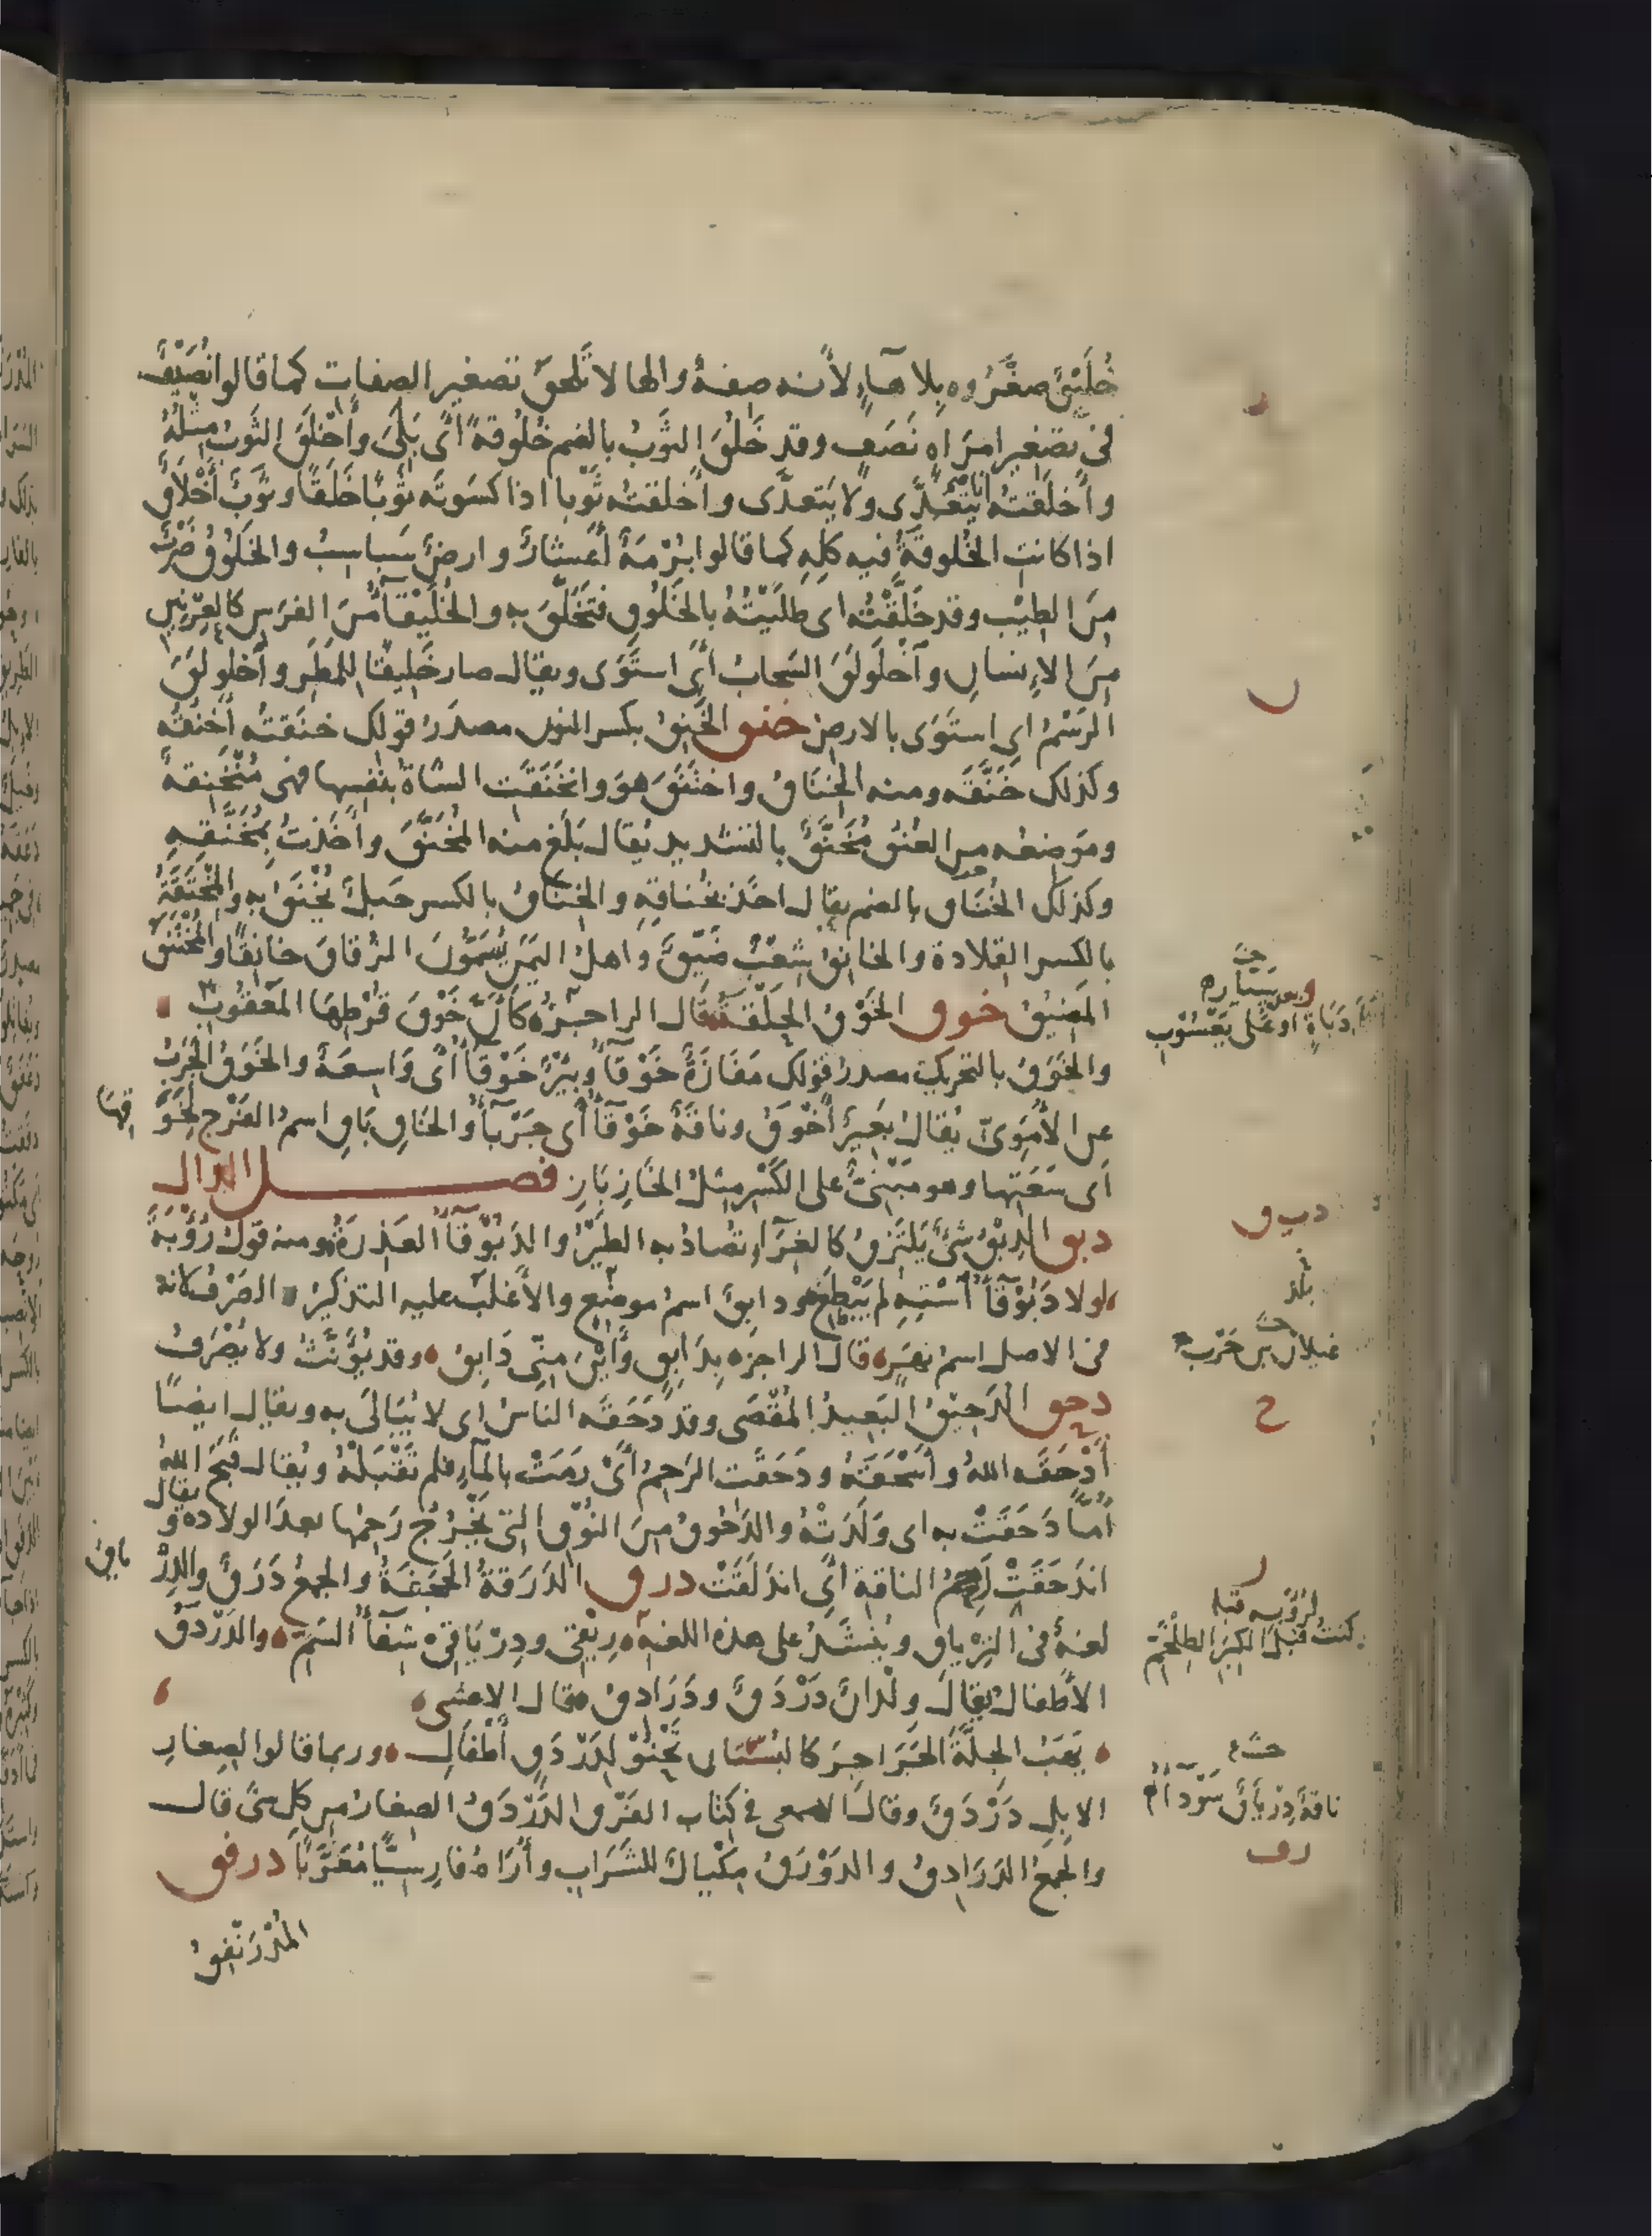 خُلَيْقٌ صغّروه بلا هاءٍ لأنه صفةٌ والها لا تلحق تصغير الصفات كما قالوا نُصَيْفٌ
فى تصغير امراه نَصَفٍ وقد خَلُقَ الثوبُ بالضم خُلُوقةً أى بَلِىَ وأَخْلَقَ الثوبُ مثلُهُ
وأَخلقتُه انا يتعدّى ولا يتعدّى وأخلقتُه ثوبا اذا كسَوته ثوبًا خَلَقًا وثوبٌ أخْلاقٌ
اذا كانت الخُلوقةُ فيه كلِهِ كما قالوا بُرْمةٌ أعشارٌ وارضٌ سَباسبُ والخَلوقُ ضربٌ
مِنَ الطيْب وقد خَلّقْتُه اى طليْتُهُ بالخَلُوقِ فتخَلّقَ به والخُلَيْقَآءُ مِنَ الفرَسِ كالعِرْنِينِ
مِنَ الإنسانِ واخْلَوْلَقَ السَحابُ أىِ استَوَى ويقال صار خَلِيقًا للمَطَرِ واخلولَقَ
الرَسْمُ اى استَوَى بالارضِ خنق الخَنِقُ بكسر النون مصدرُ قولك خنَقتُه أخنُقُه
وكذلك خَنَّقَه ومنه الخُنّاقُ واختَنَقَ هوَ وانخَنَقَتِ الشاةُ بنفسِها فهى مُنْخَنِقةٌ
وموضِعُه من العُنُق مُخَنَّقٌ بالتشديد يُقال بَلَغَ منه المُخَنَّقَ وأَخذتُ بمُخَنَّقِهِ
وكذلك الخُنَاق بالضم يقال اخذ بخُناقِهِ والخِناقُ بالكسر حَبلٌ يُخْنَقُ بِه والمِخْنَقَةُ
بالكسر القلادة والخانِقُ شِعْبٌ ضيّقٌ واهلُ اليَمَن يُسَمُّونَ الزُقاقَ خانِقًا والمُخْتَنَقُ
المَضِيْقُ خوق الخَوْقُ الحَلْقَةُ قال الراجزُ كأنّ خَوْقَ قُرْطِهَا المَعقُوبِ
والخَوَقُ بالتحريك مصدرُ قولك مَفَازَةٌ خَوْقَآءُ وبِئْرٌ خَوْقَآءُ أىْ وَاسِعَةٌ والخَوَقُ الجَرَبُ
عن الأُمَوِىّ يُقالُ بَعِيرٌ أَخْوَقُ وناقةٌ خَوْقَآءُ أى جَرْبَآءُ والخَاقِ بَاقِ اسمُ الفَرْجِ لِخَوَ قِها
أى سَعَتِها وهو مبْنىٌّ على الكَسْر مِثلُ الخَازِ بَازِ فصل الدال
دبق الدِبْقُ شئٌ يَلتَزِقُ كالغِرَآءِ تُصادُ به الطيْرُ والدَبُوْقَآءُ العَذِرَةُ ومنه قولُ رُؤْبَةَ
لولا دَبُوْقَآءُ اسْتِهِ لم يَبْطَغِ ودابقٌ اسمُ موضِعٍ والأغلبُ عليه التذكيرُ والصَرْفُ لانه
فى الاصل اسمُ نهَرٍ قال الراجزُ بِدَابِقٍ وأَيْنَ مِنّى دَابِقُ وقد يُؤَنَّثُ ولا يُصْرَفُ
دحق الدَحِيْقُ البَعِيدُ المُقْصَى وقد دَحَقَه الناسُ اى لا يُبَالَى به ويقال ايضًا
أَدْحَقَه اللهُ وأَسْحَقَهُ ودَحَقَت الرَحِمُ أىْ رَمَتْ بالمآءِ فلم تَقْبَلْهُ ويُقال قَبَحَ اللهُ
أُمًّا دَحَقَتْ به اى وَلَدَتْهُ والدَحُوقُ مِنَ النُوْقِ التى يَخْرُجُ رَحِمُها بعدَ الولاده ويقال
اندَحَقَتْ رَحِمُ الناقةِ أىِ اندَلَقَتْ درق الدَرَقةُ الحَجَفَةُ والجمعُ دَرَقٌ والدِرْ ياقُ
لغةٌ فى التِرْياقِ ويُنشَدُ على هذه اللغةِ رِيْقِى ودِرْيَاقِى شِفَآءُ السَمِّ والدَرْدَقُ
الأطفالُ يقالُ وِلْدانٌ دَرْدَقٌ ودَرَادِقُ قال الاعشى
يَهَبُ الجِلّةَ الجَرَاجِرَ كالبُسْتَانِ تَحْنُوْ لِدَرْدَقٍ أَطْفَالِ وربما قالوا لصِغارِ
الابِلِ دَرْدَقٌ وقال الاصمعى فى كِتاب الفَرْقِ الدَرْدَقُ الصِغارُ من كل شئ قال
والجَمعُ الدَرَادِقُ والدَوْرَقُ مِكْيالٌ للشَرَابِ وأُرَاهُ فارِسيًّا مُعَرَّبًا درفق
المُدْرَنْفِقُ
د
ب
وبعد سيّاره
دَبَاةٍ او على يَعْسُوبِ
دب ق
بلد
غيلان بن حَرْب
ح
ر
لرُؤْبه قبله
كنتُ قبلَ الكِبَر الطِلْخَمِّ
ناقةٌ دِرْيَاقٌ سَوْدآءُ
رف